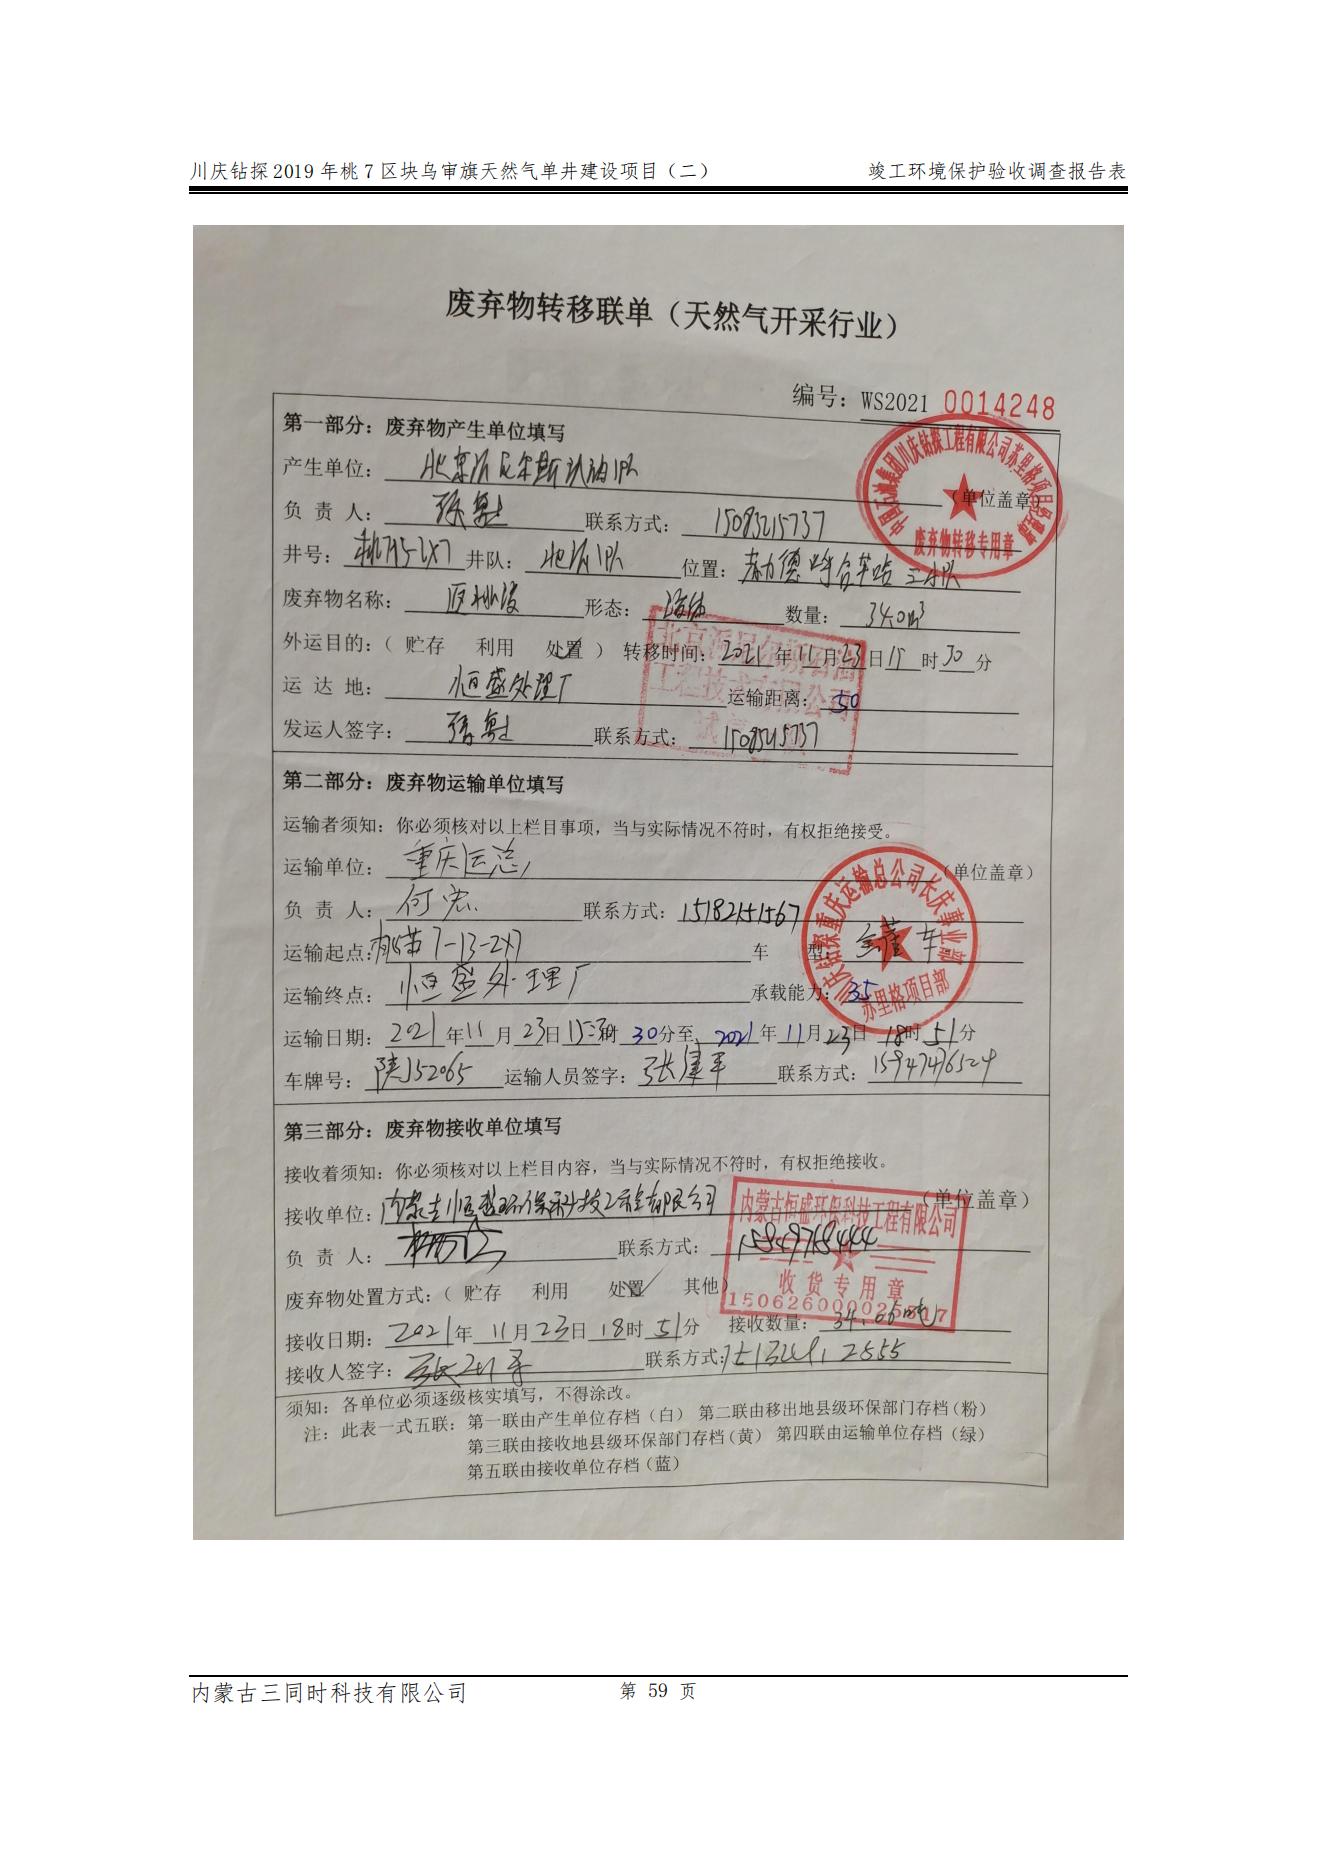 川庆钻探2019年桃7区块乌审旗天然气单井建设项目（二） 竣工环境保护验收调查报告表
废弃物转移联单（天然气开采行业）
编号：WS2021 0014248
第一部分：废弃物产生单位填写
产生单位： （单位盖章）
负 责 人： 联系方式：
井号： 井队： 位置：
废弃物名称： 形态：液体 数量：34.0m³
外运目的：（ 贮存 利用 处置 ） 转移时间：2021年11月23日15时30分
运 达 地：恒盛处理厂 运输距离：50
发运人签字： 联系方式：
中国石油集团川庆钻探工程有限公司苏里格项目经理部
废弃物转移专用章
第二部分：废弃物运输单位填写
运输者须知：你必须核对以上栏目事项，当与实际情况不符时，有权拒绝接受。
运输单位：重庆运总 （单位盖章）
负 责 人：何宏 联系方式：15182151567
运输起点： 7-13-2X7 车 型： 车
运输终点：恒盛处理厂 承载能力：35
运输日期：2021年11月23日15:30时30分至2021年11月23日18时51分
车牌号：陕J52065 运输人员签字：张建军 联系方式：15947476524
川庆钻探重庆运输总公司长庆事业部
苏里格项目部
第三部分：废弃物接收单位填写
接收着须知：你必须核对以上栏目内容，当与实际情况不符时，有权拒绝接收。
接收单位：内蒙古恒盛环保科技工程有限公司 （单位盖章）
负 责 人： 联系方式：15849768444
内蒙古恒盛环保科技工程有限公司
收货专用章
废弃物处置方式：（ 贮存 利用 处置 其他）
接收日期：2021年11月23日18时51分 接收数量：34.66吨
接收人签字： 联系方式：
须知：各单位必须逐级核实填写，不得涂改。
注：此表一式五联：第一联由产生单位存档（白） 第二联由移出地县级环保部门存档（粉）
第三联由接收地县级环保部门存档（黄） 第四联由运输单位存档（绿）
第五联由接收单位存档（蓝）
内蒙古三同时科技有限公司 第 59 页